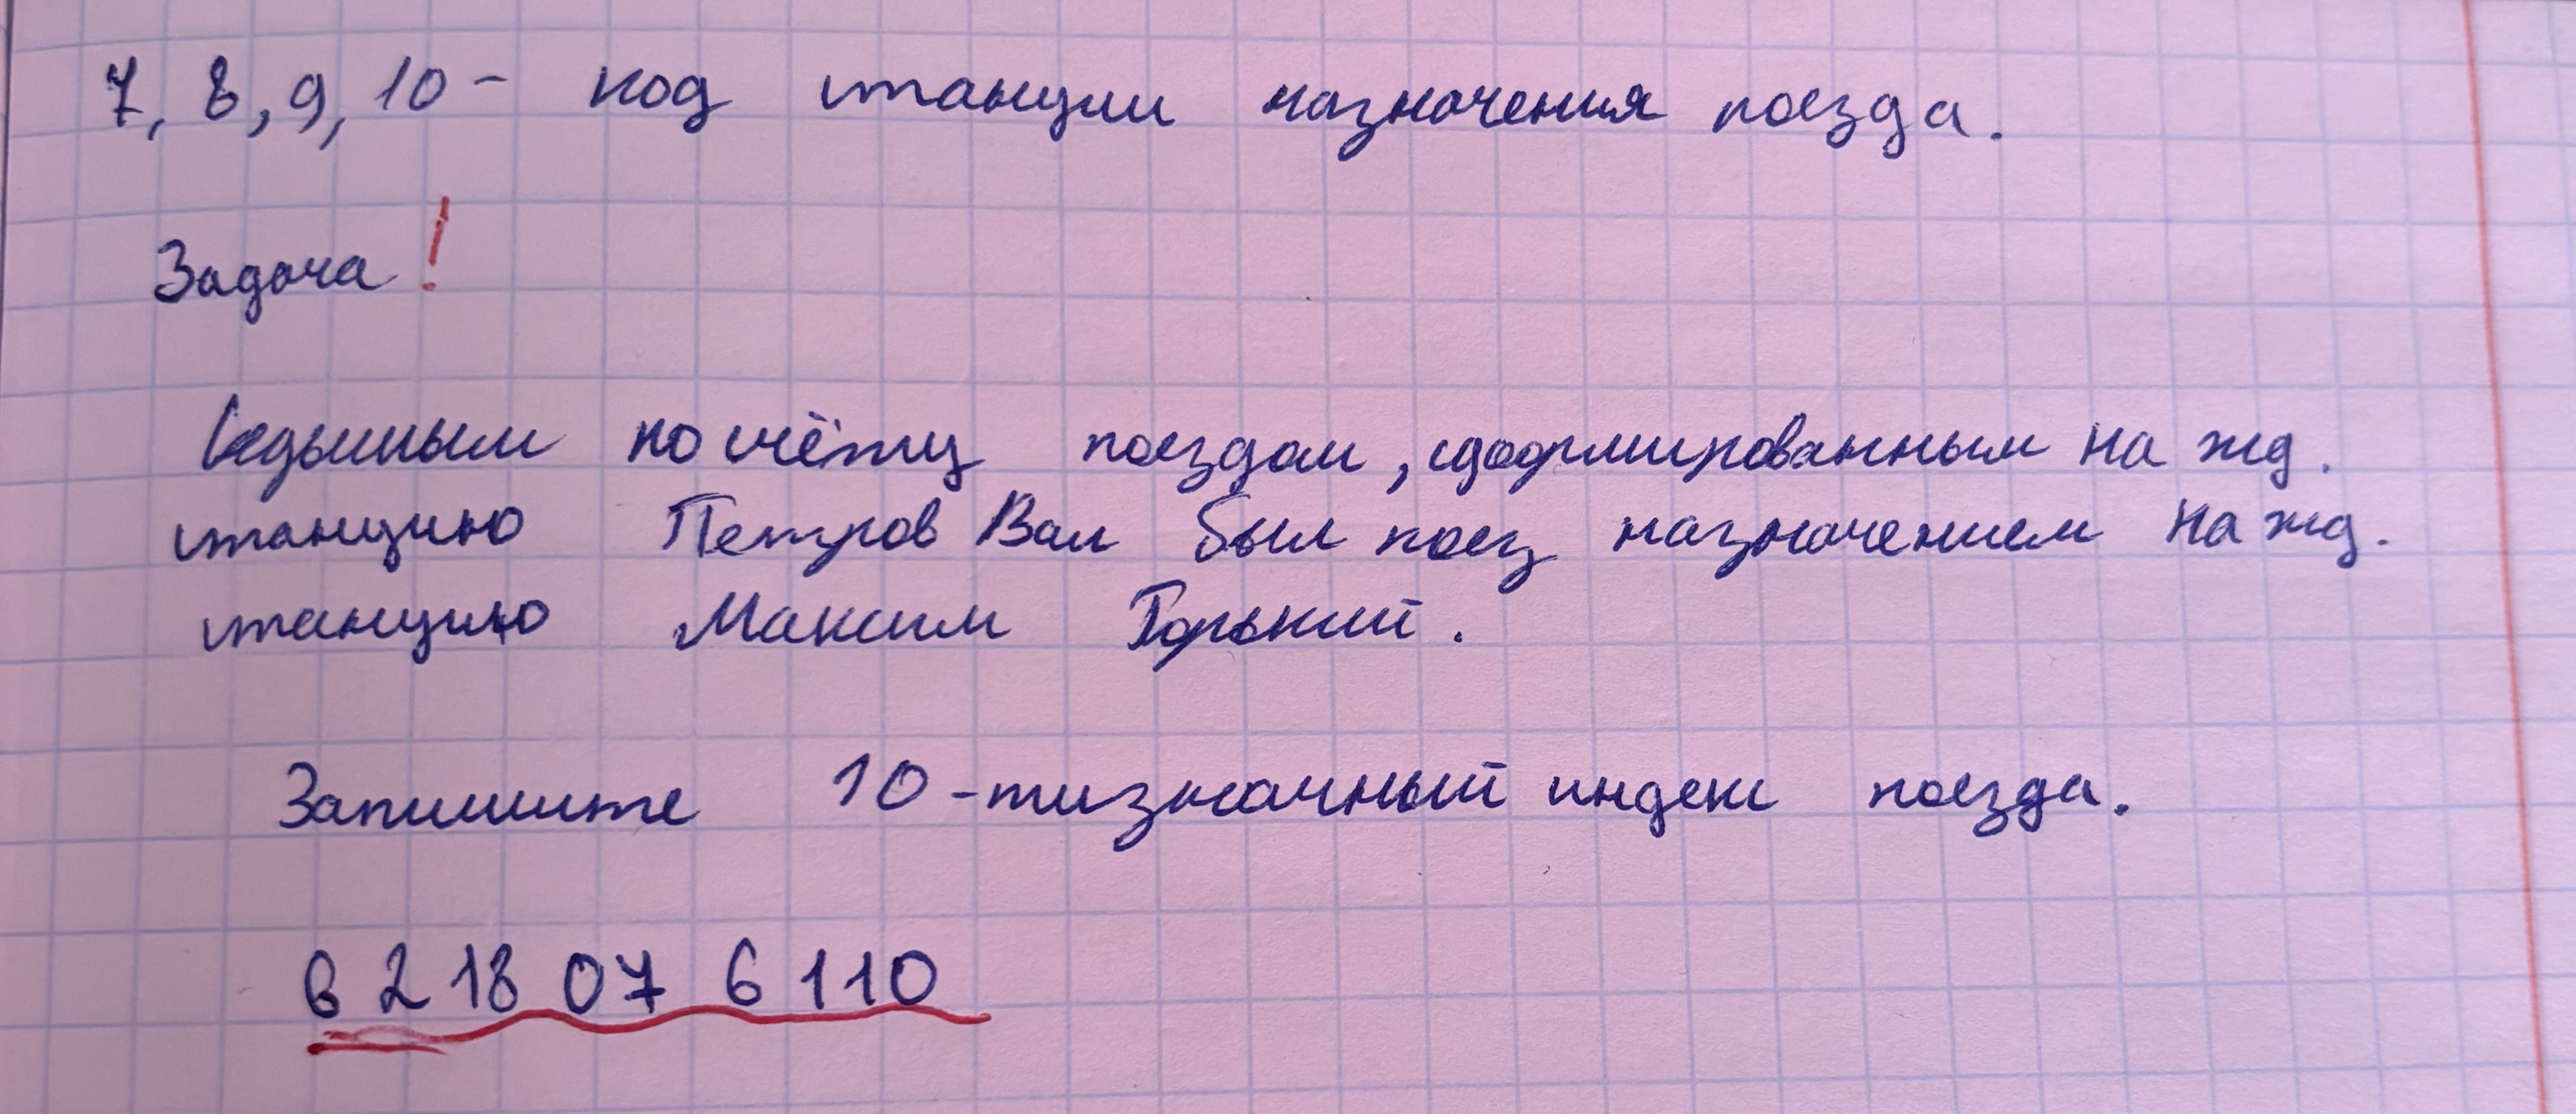 7, 8, 9, 10 - код станции назначения поезда.
Задача!
Седьмым по счёту поездом, сформированным на жд.
станцию Петров Вал был поез назначением на жд.
станцию Максим Горький.
Запишите 10-тизначный индекс поезда.
6 2 18 07 6 110